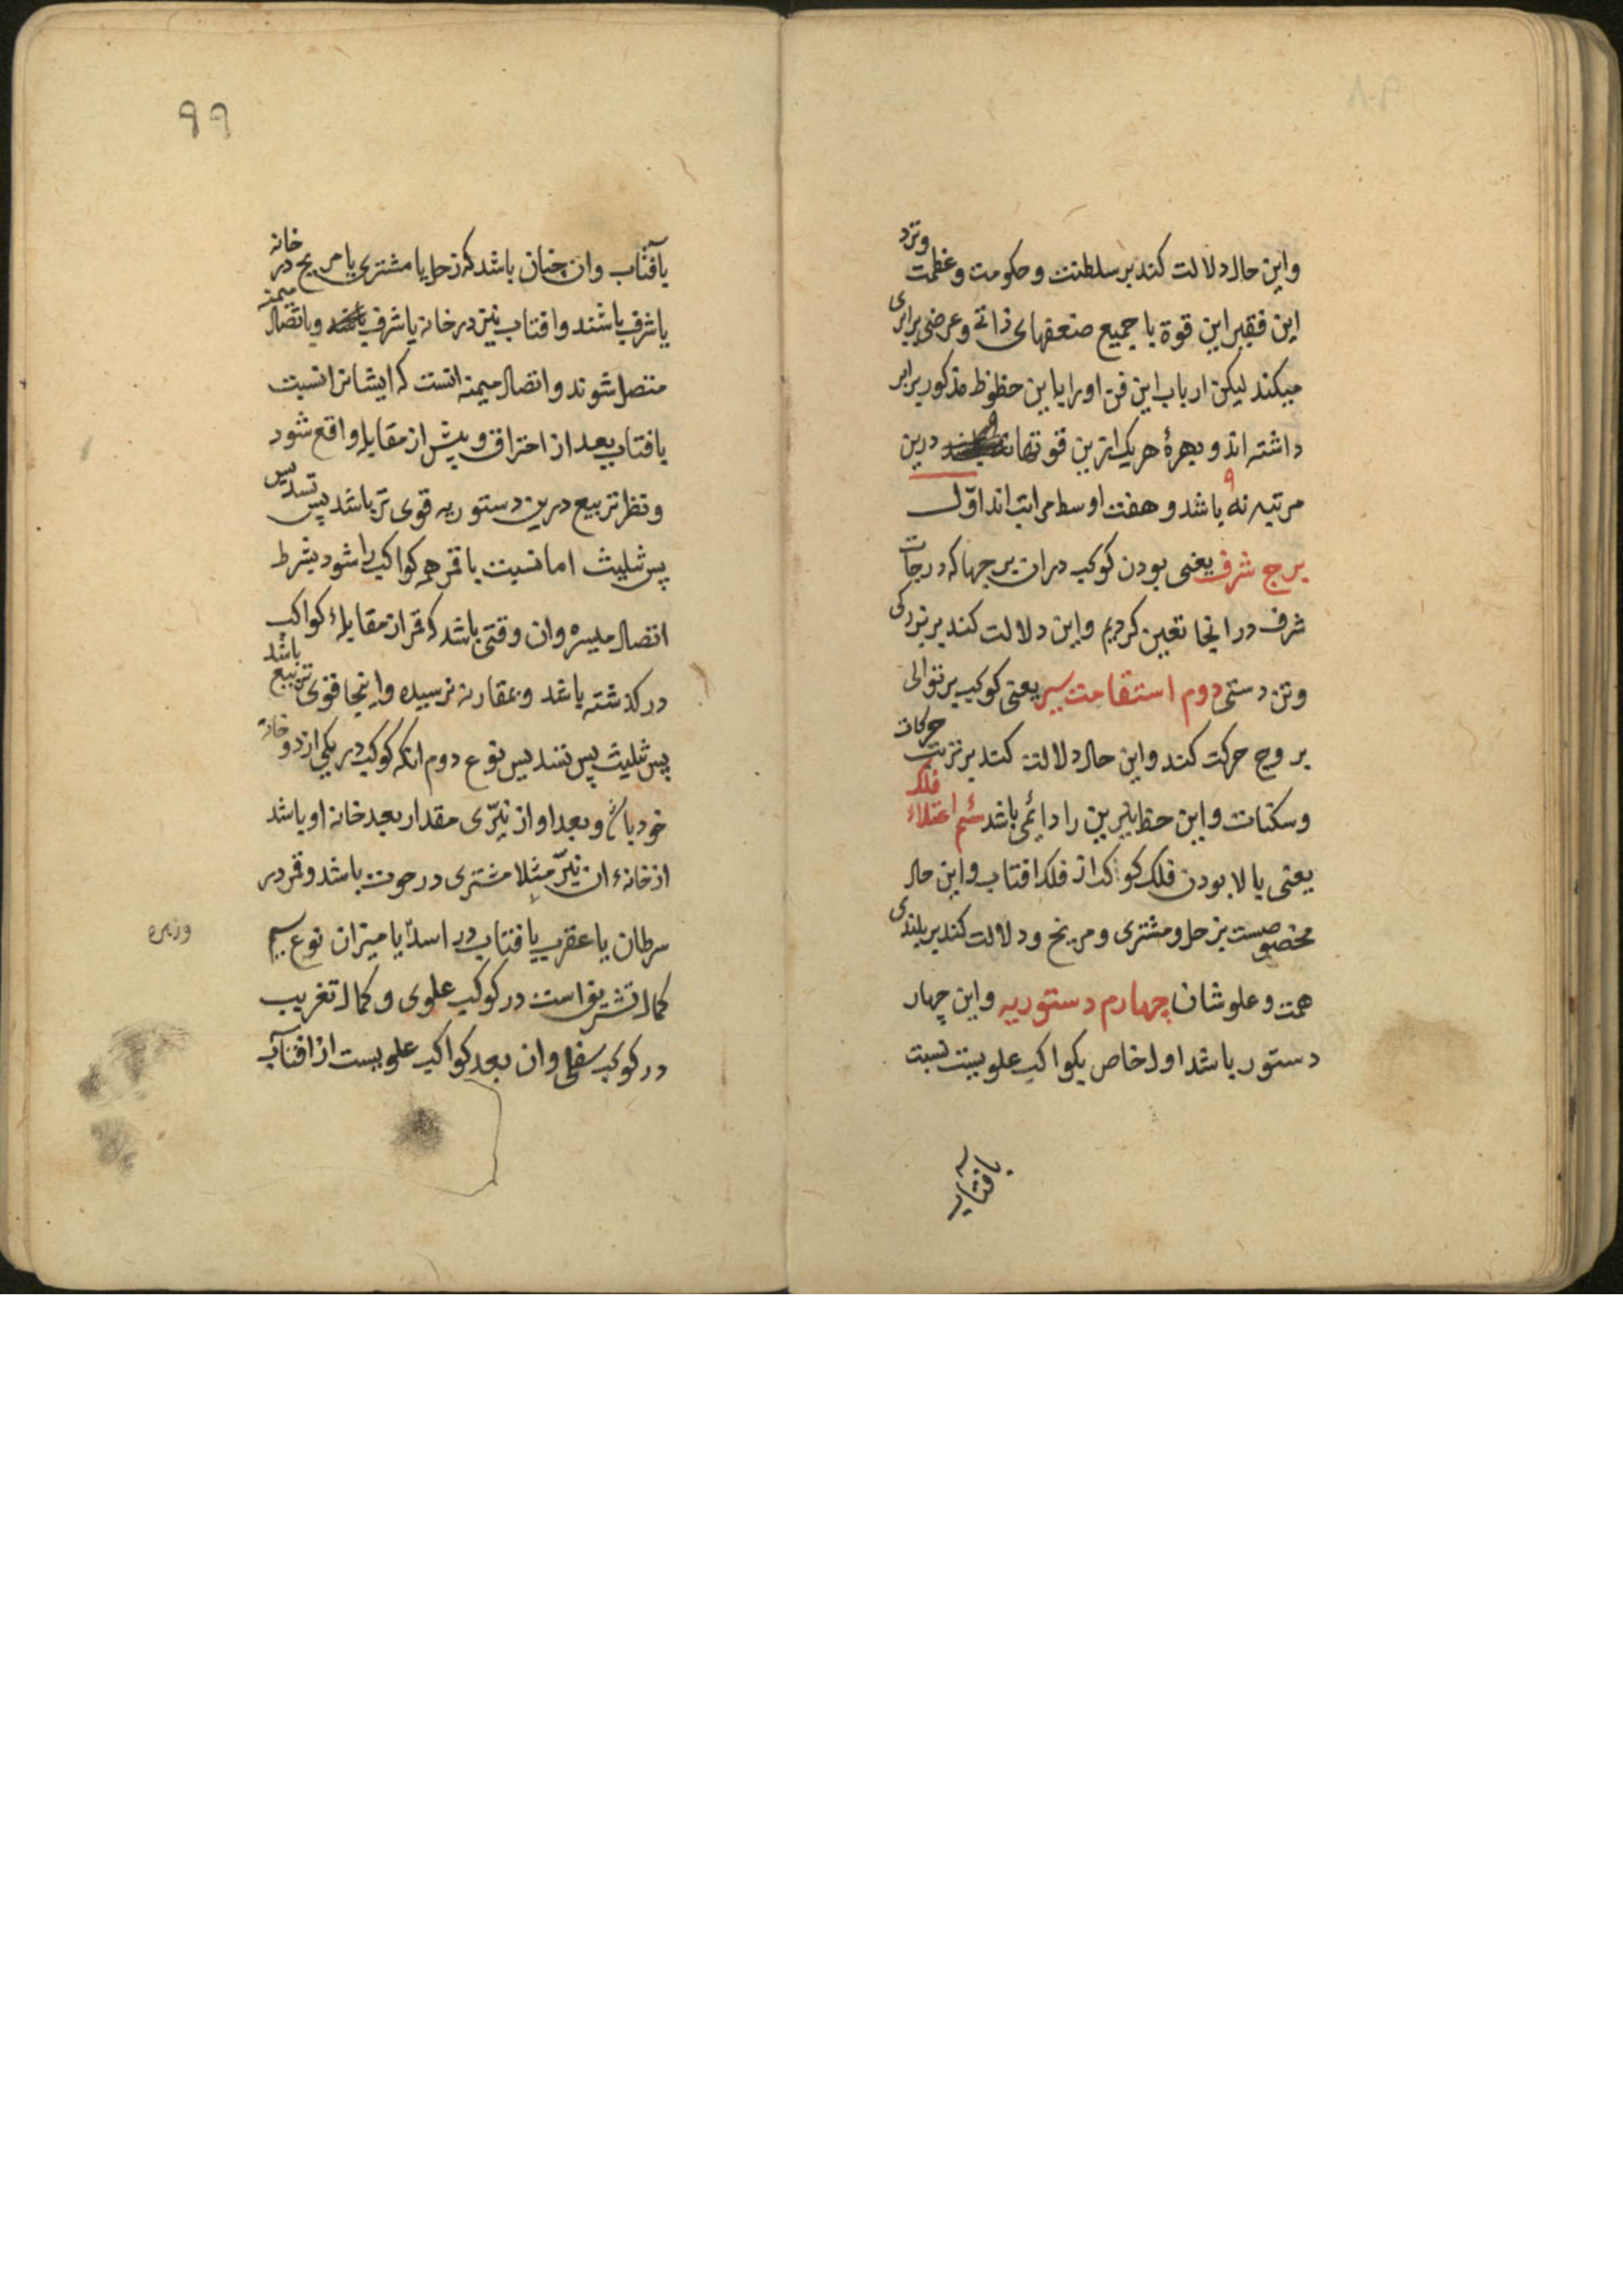 واین حال دلالت کند بر سلطنت و حکومت و عظمت ونزد
این فقیر این قوة با جمیع ضعفهای ذاتی و عرضی برابری
میکند لیکن ارباب این فن اورا باین حظوظ مذکور برابر
داشته اند و بهرهٔ هریک ازین قوتها درین
مرتبه نه ۹ باشد و هفت اوسط مراتب اند اوّل
برج شرف یعنی بودن کوکب دران برجها که درجات
شرف در انجا تعیین کردیم واین دلالت کند بر بزرکی
وتن درستی دوم استقامت سیر یعنی کوکب بر توالی
بروج حرکت کند واین حال دلالت کند بر ترتیب حرکات
وسکنات واین حظ نیرین را دایٔمی باشد سیٔم اعتلاء فلک
یعنی بالا بودن فلک کواکب از فلک افتاب واین حال
مخصوصست بزحل ومشتری ومریخ ودلالت کند بر بلندی
همت وعلو شان چهارم دستوریه واین چهار
دستور باشد اول خاص بکواکب علویست نسبت
بافتاب
۹۹
بافتاب وان چنان باشد که زحل یا مشتری یا مریخ در خانه
یا شرف باشند وافتاب نیز در خانه یا شرف وباتصال میمنه
متصل شوند واتصال میمنه انست که ایشانرا نسبت
بافتاب بعد از احتراق وپیش از مقابله واقع شود
ونظر تربیع درین دستوریه قوی تر باشد پس تسدیس
پس تثلیث اما نسبت با قمر همه کواکب را شود بشرط
اتصال میسره وان وقتی باشد که قمر از مقابلهٔ کواکب
در کذشته باشد وبمقارنه نرسیده واینجا قوی تربیع باشد
پس تثلیث پس تسدیس نوع دوم انکه کوکب در یکی از دو خانهٔ
خود باشد وبعد او از نیّری مقدار بعد خانه او باشد
از خانهٔ ان نیّر مثلا مشتری در حوت باشد وقمر در
سرطان یا عقرب یا افتاب در اسد یا میزان نوع سیم
کمال تشریق است در کوکب علوی وکمال تغریب
در کوکب سفلی وان بعد کواکب علویست از افتاب